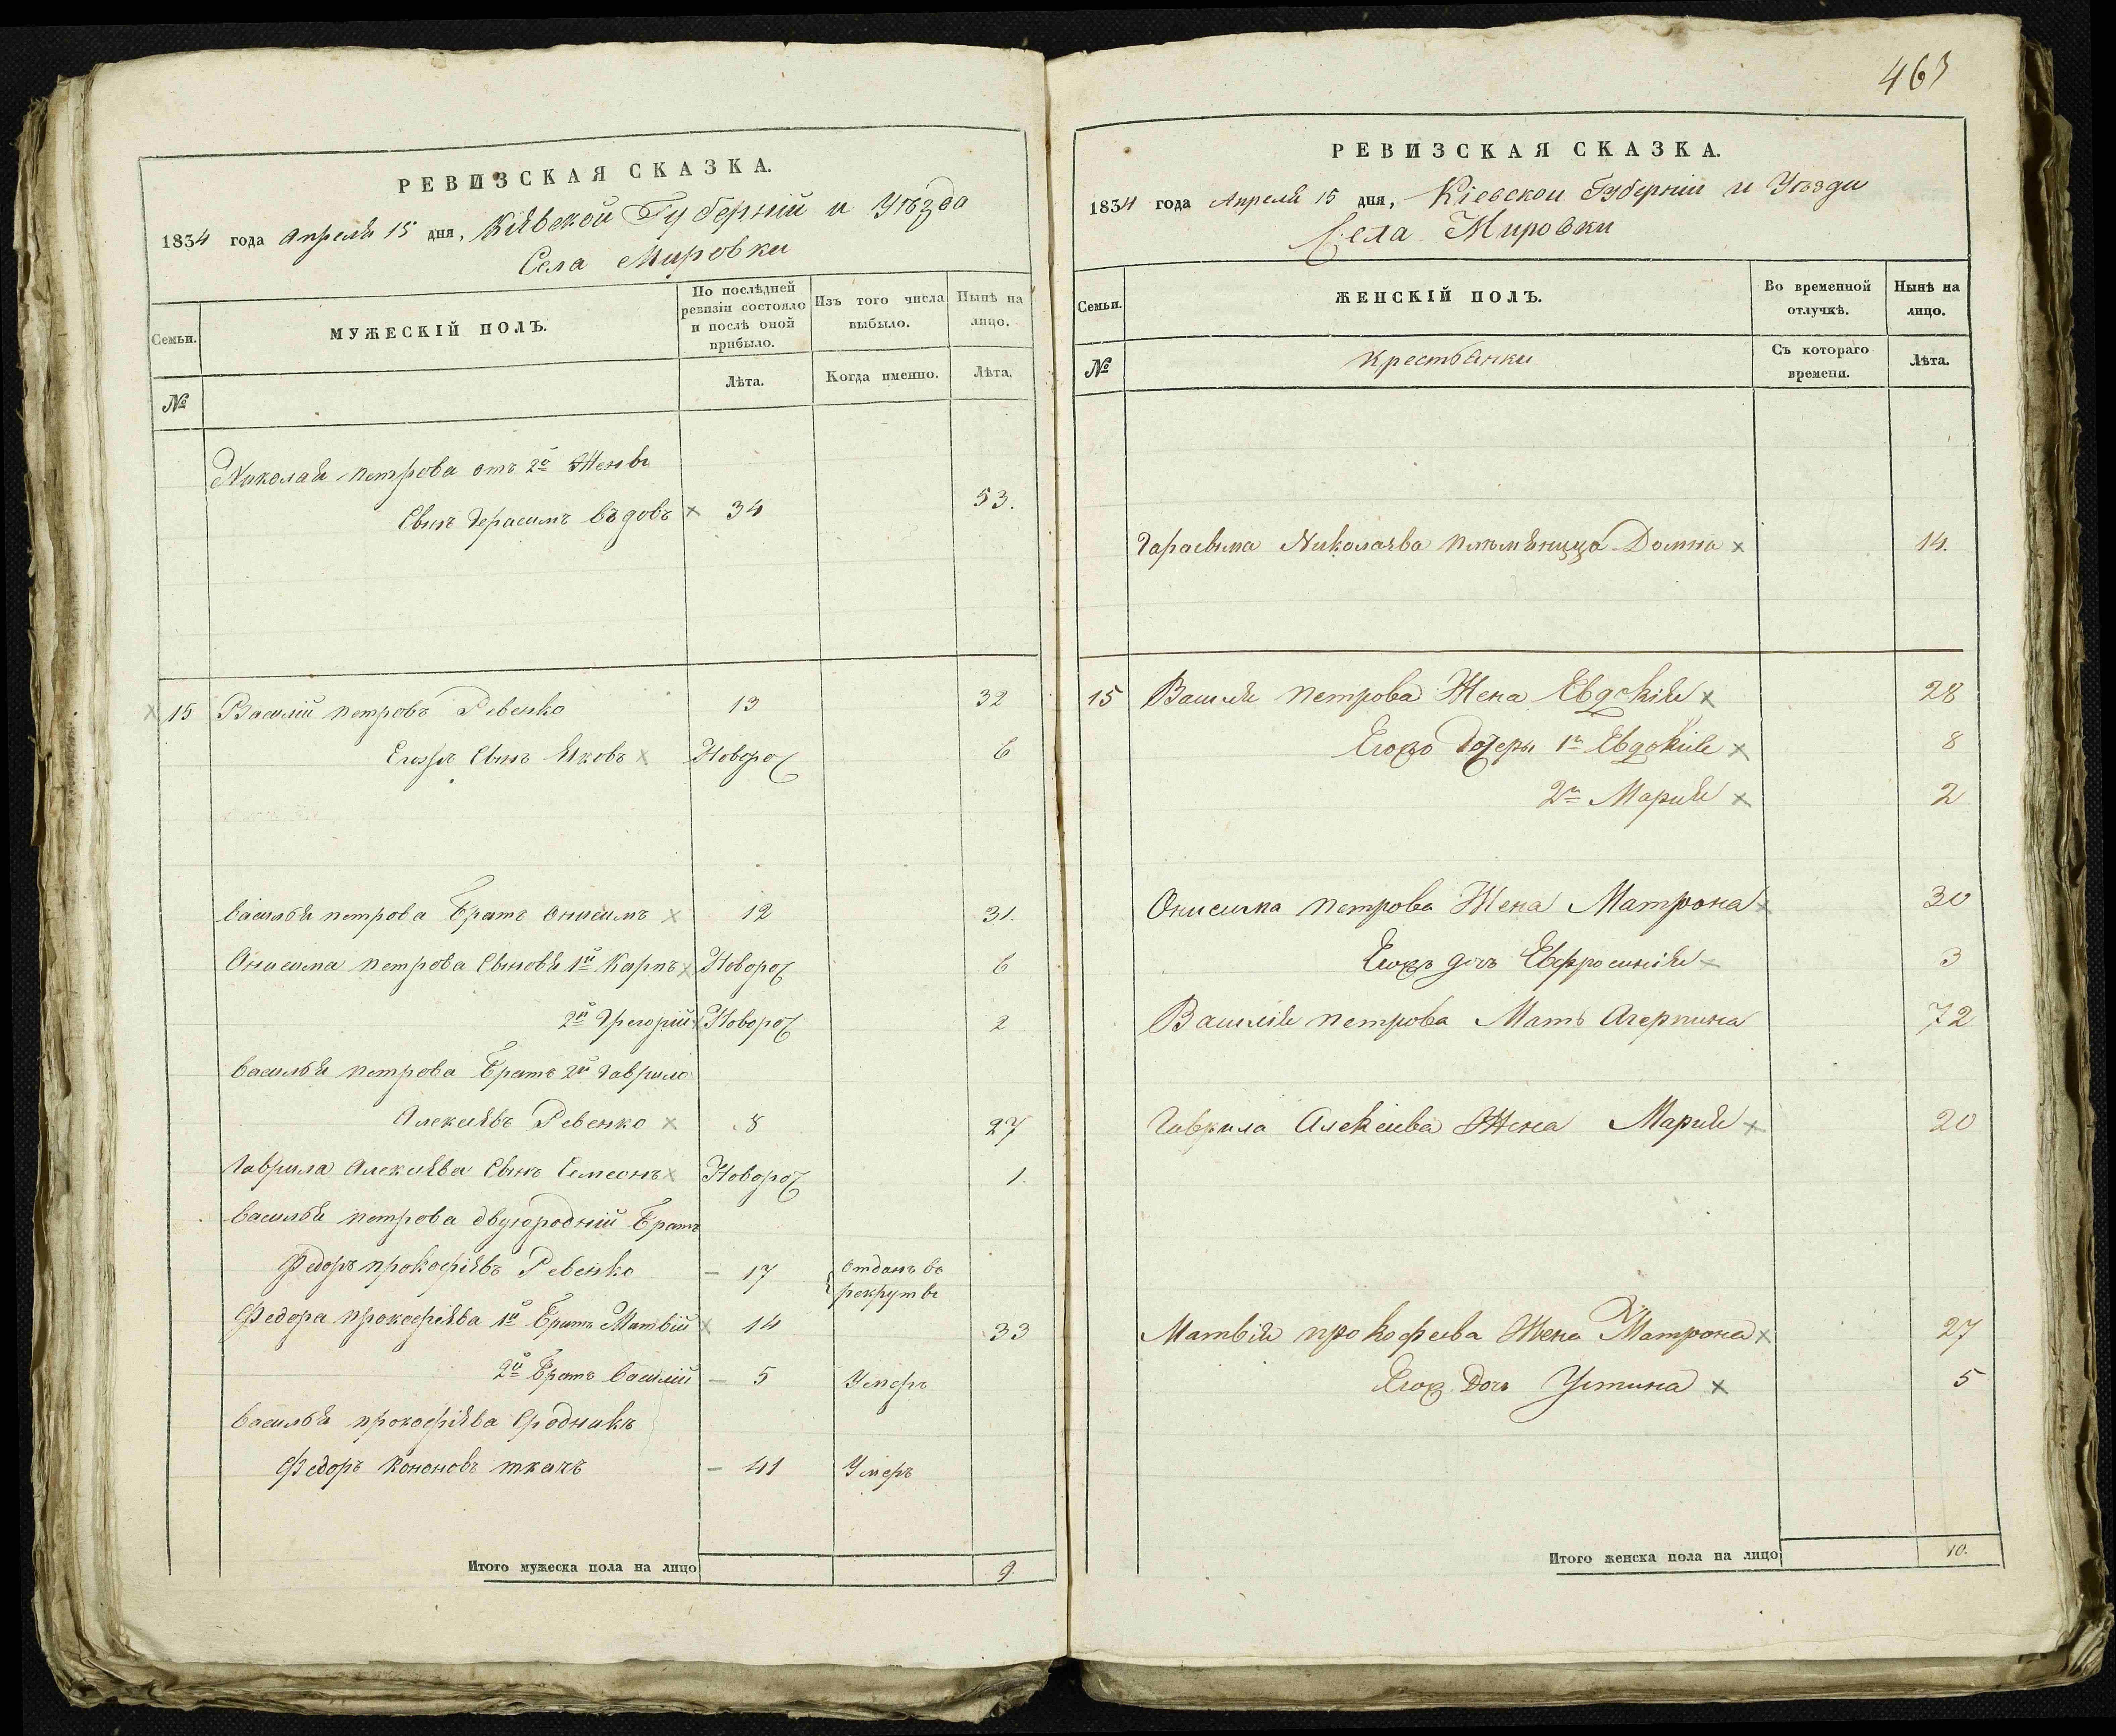 РЕВИЗСКАЯ СКАЗКА.
1834 года Апреля 15 дня, Кіевской Губерніи и Уѣзда
Села Мировки
Семьи.
МУЖЕСКІЙ ПОЛЪ.
По послѣдней
ревизіи состояло
и послѣ оной
прибыло.
Изъ того числа
выбыло.
Нынѣ на
лицо.
№
Лѣта.
Когда именно.
Лѣта.
Николая петрова отъ 2й Жены
Сынъ Герасимъ вдовъ × 34 53.
× 15 Василій петровъ Ревенко 13 32
Егожъ Сынъ Яковъ × Новорож 6
Василья петрова Братъ Онисимъ × 12 31.
Онисима петрова Сыновя 1й Карпъ × Новорож 6
2й Григорій × Новорож 2
Василья петрова Братъ 2й Гаврило
Алексѣвъ Ревенко × 8 27
Гаврила Алексіява Сынъ Семеонъ × Новорож 1.
Василья петрова двуюродній Братъ
Федоръ прокофіявъ Ревенко — 17 отданъ въ
рекруты
Федора прокофіява 1й Братъ Матвій × 14 33
2й Братъ Василій — 5 Умеръ
Василья прокофіява Сродникъ
Федоръ Кононовъ ткачъ — 41 Умеръ
Итого мужеска пола на лицо 9.
463
РЕВИЗСКАЯ СКАЗКА.
1834 года Апреля 15 дня, Кіевской Губерніи и Уѣзда
Села Мировки
Семьи.
ЖЕНСКІЙ ПОЛЪ.
Во временной
отлучкѣ.
Нынѣ на
лицо.
№
Крестьянки
Съ котораго
времени.
Лѣта.
Гарасыма Николаява племяница Домна × 14.
15 Василія петрова Жена Евдокія × 28
Егожъ Дочеры 1я Евдокія × 8
2я Марія × 2
Онисима петрова Жена Матрона × 30
Егожъ дочь Евфросинія 3
Василія петрова Мать Агерпина 72
Гаврила Алексиева Жена Марія × 20
Матвія прокофиева Жена Матрона × 27
Егож Дочь Устина × 5
Итого женска пола на лицо 10.